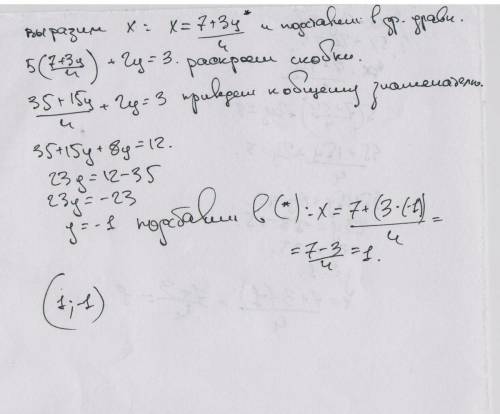 выразим x: x = 7+3y*/4 и подставим в др. уравн.
5(7+3y/4) + 2y = 3. раскроем скобки.
35+15y/4 + 2y = 3 приведем к общему знаменателю.
35+15y+8y=12.
23y = 12-35
23y = -23
y = -1 подставим в (*): x = 7+(3·(-1))/4 =
= 7-3/4 = 1.
(1;-1)